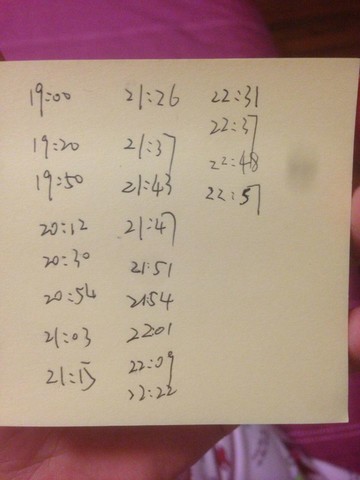 19:00
19:20
19:50
20:12
20:30
20:54
21:03
21:15
21:26
21:37
21:43
21:47
21:51
21:54
22:01
22:09
22:22
22:31
22:37
22:48
22:57